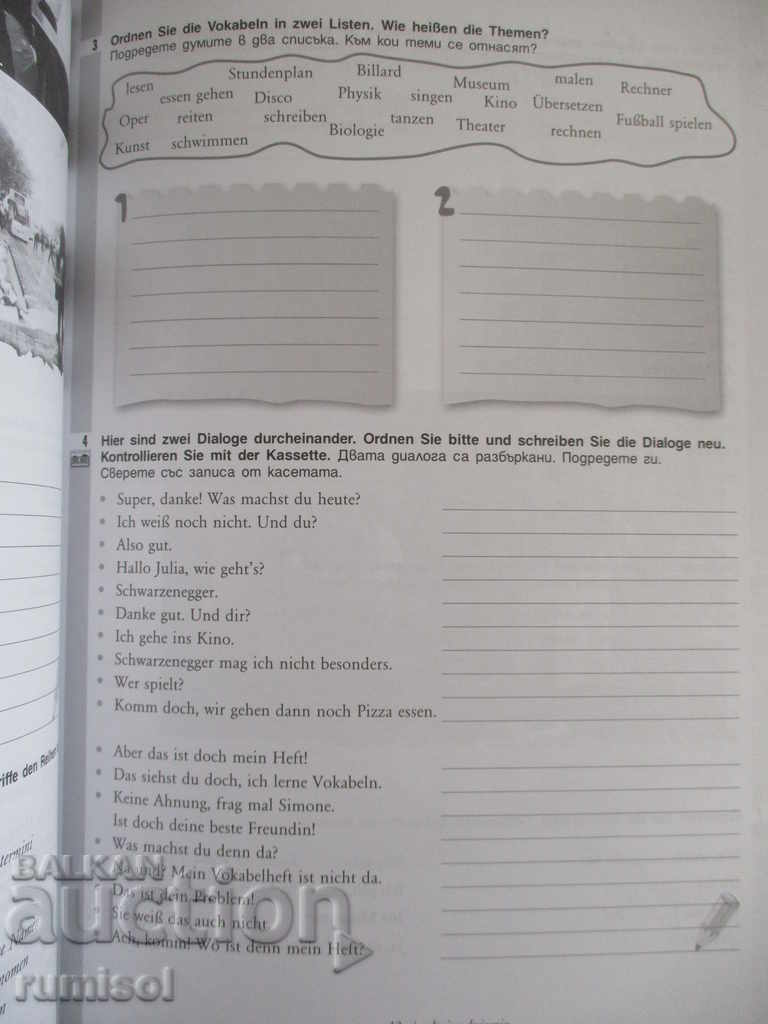 3 Ordnen Sie die Vokabeln in zwei Listen. Wie heißen die Themen?
Подредете думите в два списъка. Към кои теми се отнасят?
lesen Stundenplan Billard Museum malen Rechner
essen gehen Disco Physik singen Kino Übersetzen
Oper reiten schreiben tanzen Theater rechnen Fußball spielen
Kunst schwimmen Biologie
1 2
4 Hier sind zwei Dialoge durcheinander. Ordnen Sie bitte und schreiben Sie die Dialoge neu.
Kontrollieren Sie mit der Kassette. Двата диалога са разбъркани. Подредете ги.
Сверете със записа от касетата.
• Super, danke! Was machst du heute?
• Ich weiß noch nicht. Und du?
• Also gut.
• Hallo Julia, wie geht's?
• Schwarzenegger.
• Danke gut. Und dir?
• Ich gehe ins Kino.
• Schwarzenegger mag ich nicht besonders.
• Wer spielt?
• Komm doch, wir gehen dann noch Pizza essen.
• Aber das ist doch mein Heft!
• Das siehst du doch, ich lerne Vokabeln.
• Keine Ahnung, frag mal Simone.
Ist doch deine beste Freundin!
• Was machst du denn da?
Na und? Mein Vokabelheft ist nicht da.
Das ist dein Problem!
• Sie weiß das auch nicht.
Ach, komm! Wo ist denn mein Heft?
riffe den
termini
BALKAN
auction
rumisol